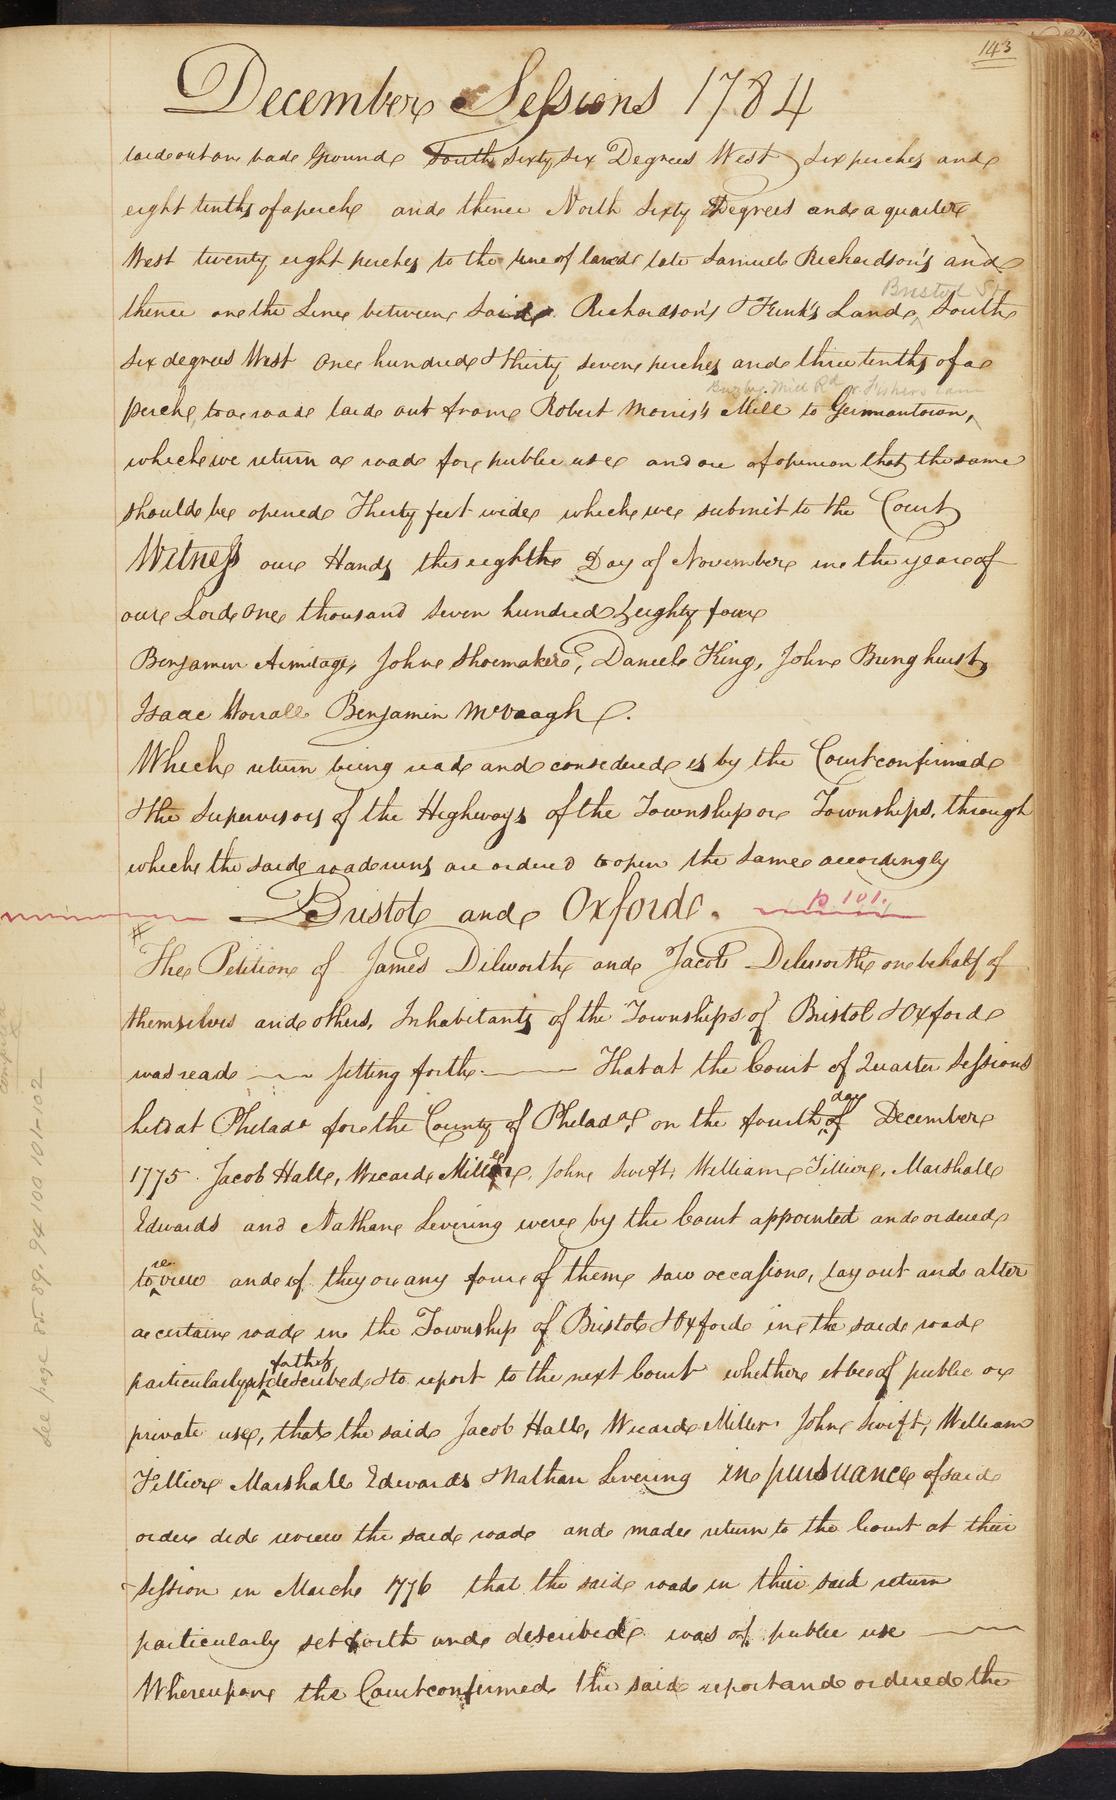 143
December Sessions 1784
laid out on bade Ground South Sixty Six Degrees West Six perches and
eight tenths of a perch and thence North Sixty Degrees and a quarter
West twenty eight perches to the line of land late Samuel Richardson's and
Bristol St
thence on the Line between said Richardson's & Funk's Land, South
six degrees West One hundred & thirty seven perches and three tenths of a
Mill Rd or Fishers Lane
perch, to a road laid out from Robert Morris's Mill to Germantown,
which we return a road for public use and are of opinion that the same
should be opened Thirty feet wide which we submit to the Court
Witness our Hands this eighth Day of November in the year of
our Lord One thousand Seven hundred & eighty four
Benjamin Armitage, John Shoemaker, Daniel King, John Bringhurst,
Isaac Worrall Benjamin McVaugh.
Which return being read and considered is by the Court confirmed
& the Supervisors of the Highways of the Township or Townships, through
which the said road runs are ordered to open the same accordingly
Bristol and Oxford. p 101.
#
The Petition of James Dilworth and Jacob Dilworth on behalf of
themselves and others, Inhabitants of the Townships of Bristol & Oxford
was read — setting forth — That at the Court of Quarter Sessions
day
held at Philada for the County of Philada on the fourth of December
1775. Jacob Hall, Wicard Miller, John Swift, William Tillier, Marshall
Edwards and Nathan Levering were by the Court appointed and ordered
re
to view and if they or any four of them saw occasion, lay out and alter
a certain road in the Township of Bristol & Oxford in the said road
forth &
particularly set described & to report to the next Court whether it be of public or
private use, that the said Jacob Hall, Wicard Miller John Swift, William
Tillier Marshall Edwards & Nathan Levering in pursuance of said
order did review the said road and made return to the Court at their
Session in March 1776 that the said road in their said return
particularly set forth and described was of public use —
Whereupon the Court confirmed the said report and ordered the
See page 85. 89. 94 100 101-102